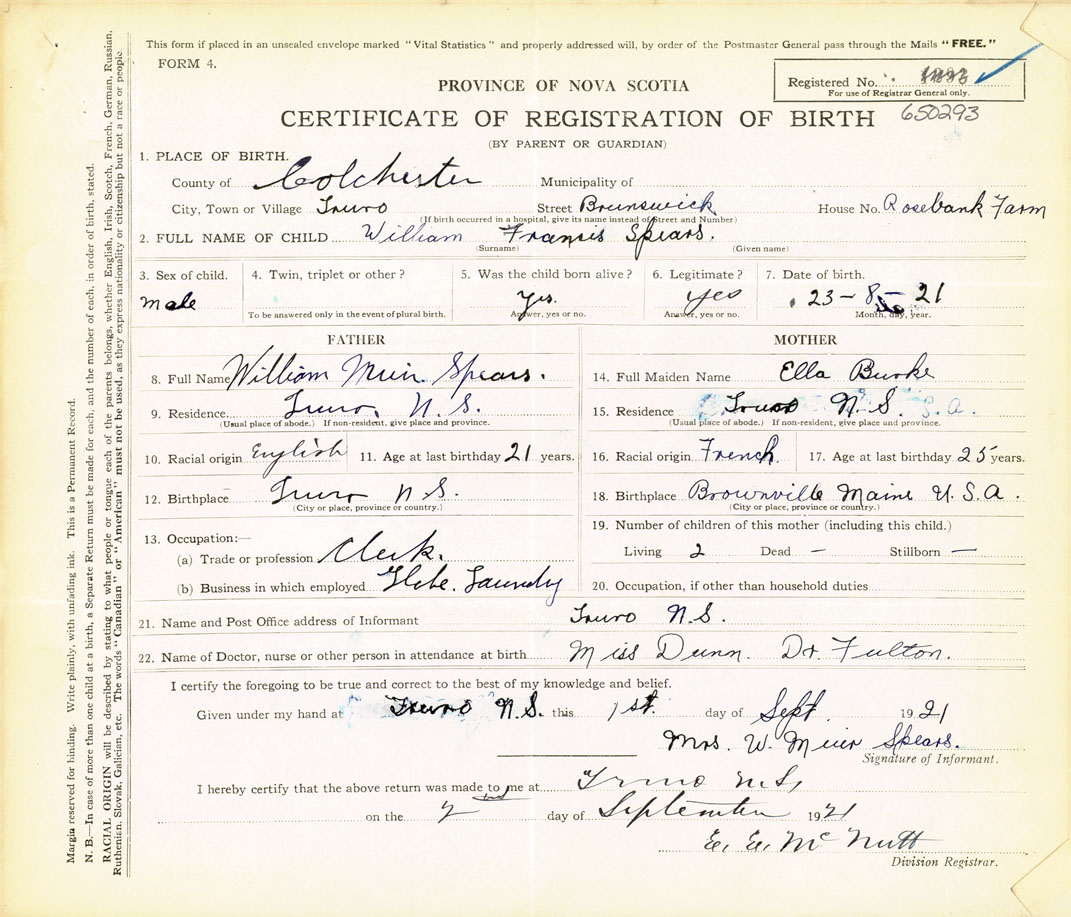 This form if placed in an unsealed envelope marked "Vital Statistics" and properly addressed will, by order of the Postmaster General pass through the Mails "FREE."
FORM 4.
PROVINCE OF NOVA SCOTIA
Registered No.
For use of Registrar General only.
650293
CERTIFICATE OF REGISTRATION OF BIRTH
(BY PARENT OR GUARDIAN)
1. PLACE OF BIRTH.
County of Colchester Municipality of
City, Town or Village Truro Street Brunswick House No. Rosebank Farm
(If birth occurred in a hospital, give its name instead of Street and Number)
2. FULL NAME OF CHILD William Francis Spears.
(Surname) (Given name)
3. Sex of child. 4. Twin, triplet or other? 5. Was the child born alive? 6. Legitimate? 7. Date of birth.
male Yes. yes 23-8-21
To be answered only in the event of plural birth. Answer, yes or no. Answer, yes or no. Month, day, year.
FATHER MOTHER
8. Full Name William Muir Spears. 14. Full Maiden Name Ella Burke
9. Residence Truro, N.S. 15. Residence Truro N.S.
(Usual place of abode.) If non-resident, give place and province. (Usual place of abode.) If non-resident, give place and province.
10. Racial origin English 11. Age at last birthday 21 years. 16. Racial origin French 17. Age at last birthday 25 years.
12. Birthplace Truro N.S. 18. Birthplace Brownville Maine U.S.A.
(City or place, province or country.) (City or place, province or country.)
13. Occupation:— 19. Number of children of this mother (including this child.)
(a) Trade or profession Clerk. Living 2 Dead — Stillborn —
(b) Business in which employed Globe. Laundry 20. Occupation, if other than household duties
21. Name and Post Office address of Informant Truro N.S.
22. Name of Doctor, nurse or other person in attendance at birth. Miss Dunn. Dr. Fulton.
I certify the foregoing to be true and correct to the best of my knowledge and belief.
Given under my hand at Truro N.S. this 1st. day of Sept. 1921
Mrs. W. Muir Spears.
Signature of Informant.
I hereby certify that the above return was made to me at Truro N.S,
on the 2nd day of September 1921
E. E. McNutt
Division Registrar.
Margin reserved for binding. Write plainly, with unfading ink. This is a Permanent Record.
N. B.—In case of more than one child at a birth, a Separate Return must be made for each, and the number of each, in order of birth, stated.
RACIAL ORIGIN will be described by stating to what people or tongue each of the parents belongs, whether English, Irish, Scotch, French, German, Russian,
Ruthenian, Slovak, Galician, etc. The words "Canadian" or "American" must not be used, as they express nationality or citizenship but not a race or people.